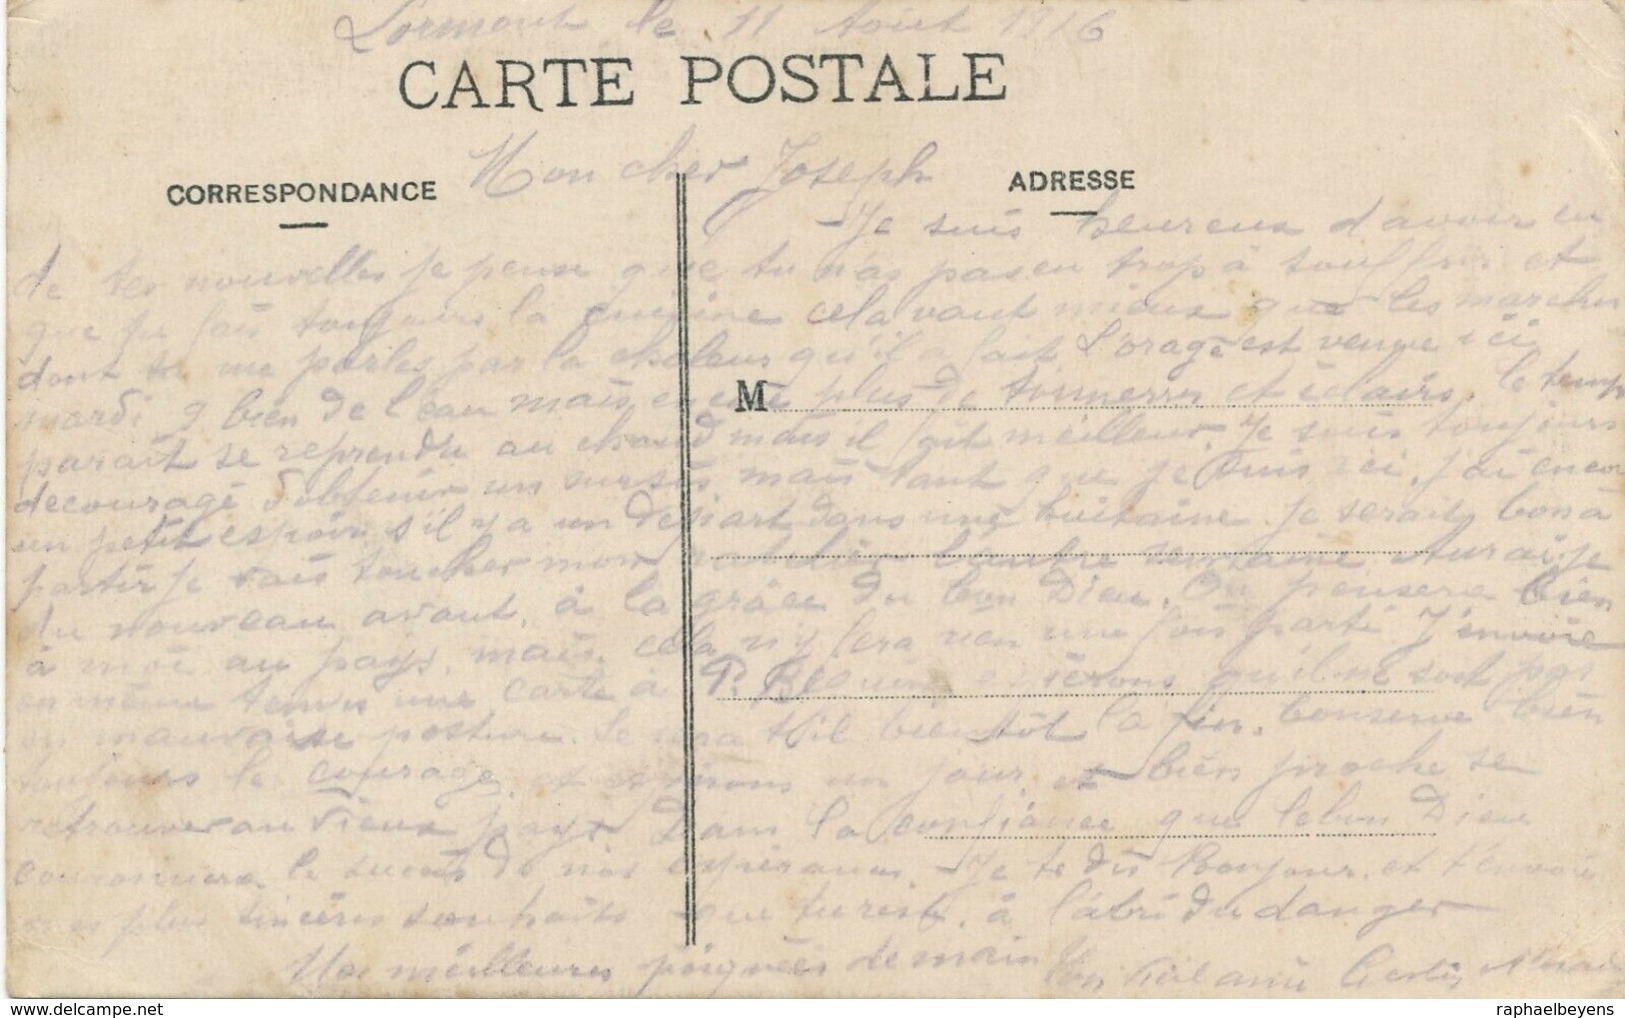 Lormont le 11 Août 1916
CARTE POSTALE
Mon cher Joseph
CORRESPONDANCE
ADRESSE
Je suis heureux d'avoir eu
de tes nouvelles je pense que tu n'as pas eu trop à souffrir et
que tu fais toujours la cuisine cela vaut mieux que les marches
dont tu me parles par la chaleur qu'il a fait L'orage est venue ici
mardi, bien de l'eau mais plus de tonnerres et éclairs, le temps
M
parait se reprendre au chaud mais il fait meilleur. Je suis toujours
decouragé d'obtenir un sursis mais tant que je suis ici, j'ai encore
un petit espoir, s'il y a un départ dans une huitaine. je serait bon à
partir je vais toucher mon l'autre semaine Aurai je
du nouveau avant, à la grâce du bon Dieu. On pensera bien
à moi au pays, mais cela n'y fera rien une fois parti J'envoie
en même temps une carte à P. qu'il ne soit pas
en mauvaise posture. Se sera t'il bientôt la fin. Conserve bien
toujours le courage, et espérons un jour, et bien proche se
retrouver au vieux pays Dans la confiance que le bon Dieu
couronnera le succès de nos espérances. Je te dis Bonjour, et t'envoie
mes plus sincères souhaits que tu reste, à l'abri du danger
Mes meilleures poignées de main Ton vieil ami
raphaelbeyens